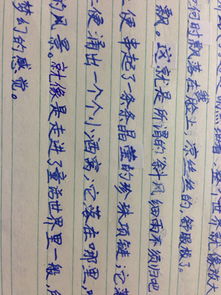 世界就像
时飘落在我脸上,凉丝丝的,舒服极了。
飘。这就是所谓的“斜风细雨不须归”吧
便串起了一条条晶莹的珍珠项链;它
便涌出一个个小酒窝;它落在哪里,
的风景,就像是走进了童话世界里一般,
梦幻的感觉。